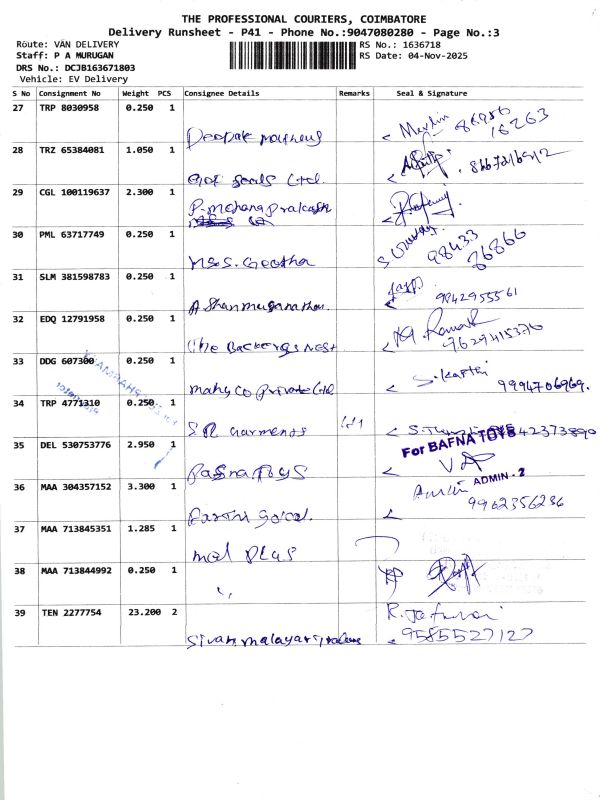 THE PROFESSIONAL COURIERS, COIMBATORE
Delivery Runsheet - P41 - Phone No.:9047080280 - Page No.:3
Route: VAN DELIVERY
RS No.: 1636718
Staff: P A MURUGAN
RS Date: 04-Nov-2025
DRS No.: DCJB163671803
Vehicle: EV Delivery
S No Consignment No Weight PCS Consignee Details Remarks Seal & Signature
27 TRP 8030958 0.250 1
Deepak
28 TRZ 65384081 1.050 1
Seals Ltd.
29 CGL 100119637 2.300 1
P. mohana prakash
30 PML 63717749 0.250 1
98433
86866
Geetha
31 SLM 381598783 0.250 1
9842955561
A Shanmuganathan
32 EDQ 12791958 0.250 1
The Backers Nest
9629415376
33 DDG 607300 0.250 1
mahyco Private Ltd
9994706969.
34 TRP 4771310 0.250 1
S R Garments
42373890
35 DEL 530753776 2.950 1
For BAFNA TOYS
Bafna Toys
ADMIN - 2
36 MAA 304357152 3.300 1
9962356236
37 MAA 713845351 1.285 1
mal Plus
38 MAA 713844992 0.250 1
"
39 TEN 2277754 23.200 2
9585527127